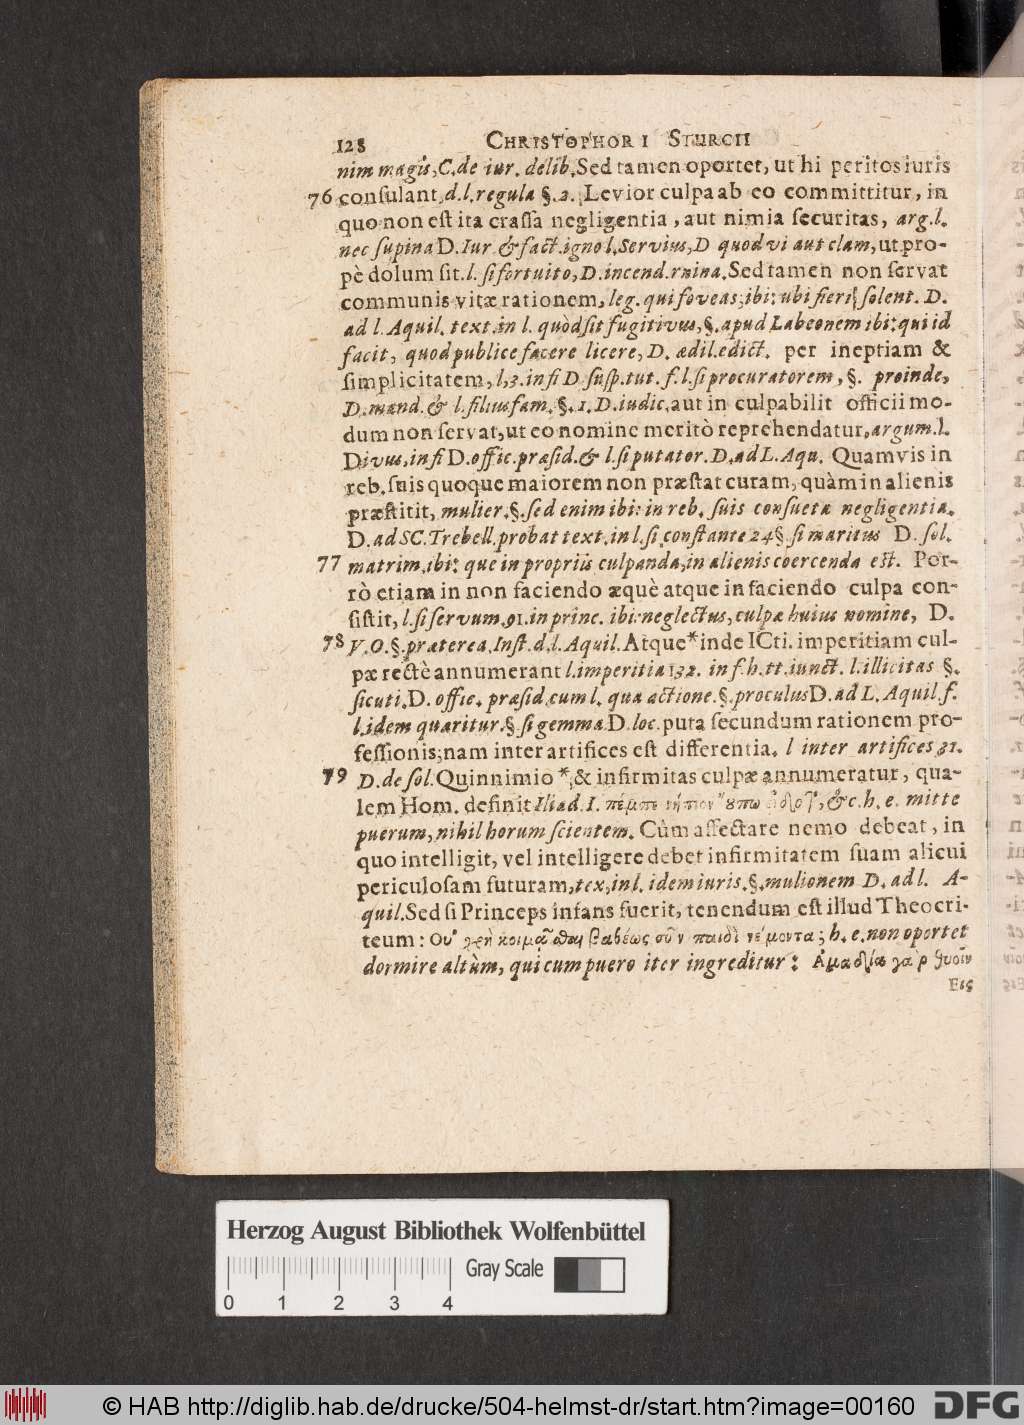 128 CHRISTOPHORI STURCII
nim magis, C. de iur. delib. Sed tamen oportet, ut hi peritos iuris
76 consulant, d. l. regula §. 2. Levior culpa ab eo committitur, in
quo non est ita crassa negligentia, aut nimia securitas, arg. l.
nec supina D. Iur. & fact. igno l. Servius, D quod vi aut clam, ut pro-
pè dolum sit. l. si fortuito, D. incend. ruina. Sed tamen non servat
communis vitæ rationem, leg. qui foveas, ibi: ubi fieri solent. D.
ad l. Aquil. text. in l. quòd sit fugitivus, §. apud Labeonem ibi: qui id
facit, quod publice facere licere, D. ædil. edict. per ineptiam &
simplicitatem, l. 3. in fi D. susp. tut. f. l. si procuratorem, §. proinde,
D. mand. & l. filiusfam. §. 1. D. iudic. aut in culpabilit officii mo-
dum non servat, ut eo nomine meritò reprehendatur, argum. l.
Divus, in fi D. offic. præsid. & l. si putator. D. ad L. Aqu. Quamvis in
reb. suis quoque maiorem non præstat curam, quàm in alienis
præstitit, mulier. §. sed enim ibi: in reb. suis consueta negligentia.
D. ad SC. Trebell. probat text. in l. si constante 24 §. si maritus D. sol.
77 matrim. ibi: que in propriis culpanda, in alienis coercenda est. Por-
rò etiam in non faciendo æquè atque in faciendo culpa con-
sistit, l. si servum. 91. in princ. ibi: neglectus, culpæ huius nomine, D.
78 V. O. §. præterea, Inst. d. l. Aquil. Atque * inde ICti. imperitiam cul-
pæ rectè annumerant l. imperitia 132. in f. h. tt. iunct. l. illicitas §.
sicuti. D. offic. præsid. cum l. qua actione. §. proculus D. ad L. Aquil. f.
l. idem quæritur. § si gemma. D. loc. puta secundum rationem pro-
fessionis; nam inter artifices est differentia. l inter artifices 31.
79 D. de sol. Quinnimio *, & infirmitas culpæ annumeratur, qua-
lem Hom. definit Iliad. I. πέμπε νήπιον οὔπω εἰδότ', &c. h. e. mitte
puerum, nihil horum scientem. Cùm affectare nemo debeat, in
quo intelligit, vel intelligere debet infirmitatem suam alicui
periculosam futuram, tex, in l. idem iuris. §. mulionem D. ad l. A-
quil. Sed si Princeps infans fuerit, tenendum est illud Theocri-
teum: Οὐ χρὴ κοιμᾶσθαι βαθέως σὺν παιδὶ νέμοντα; h. e. non oportet
dormire altùm, qui cum puero iter ingreditur: Ἀμαθία γὰρ θυοῖν
Εις
Herzog August Bibliothek Wolfenbüttel
Gray Scale
0 1 2 3 4
© HAB http://diglib.hab.de/drucke/504-helmst-dr/start.htm?image=00160
DFG